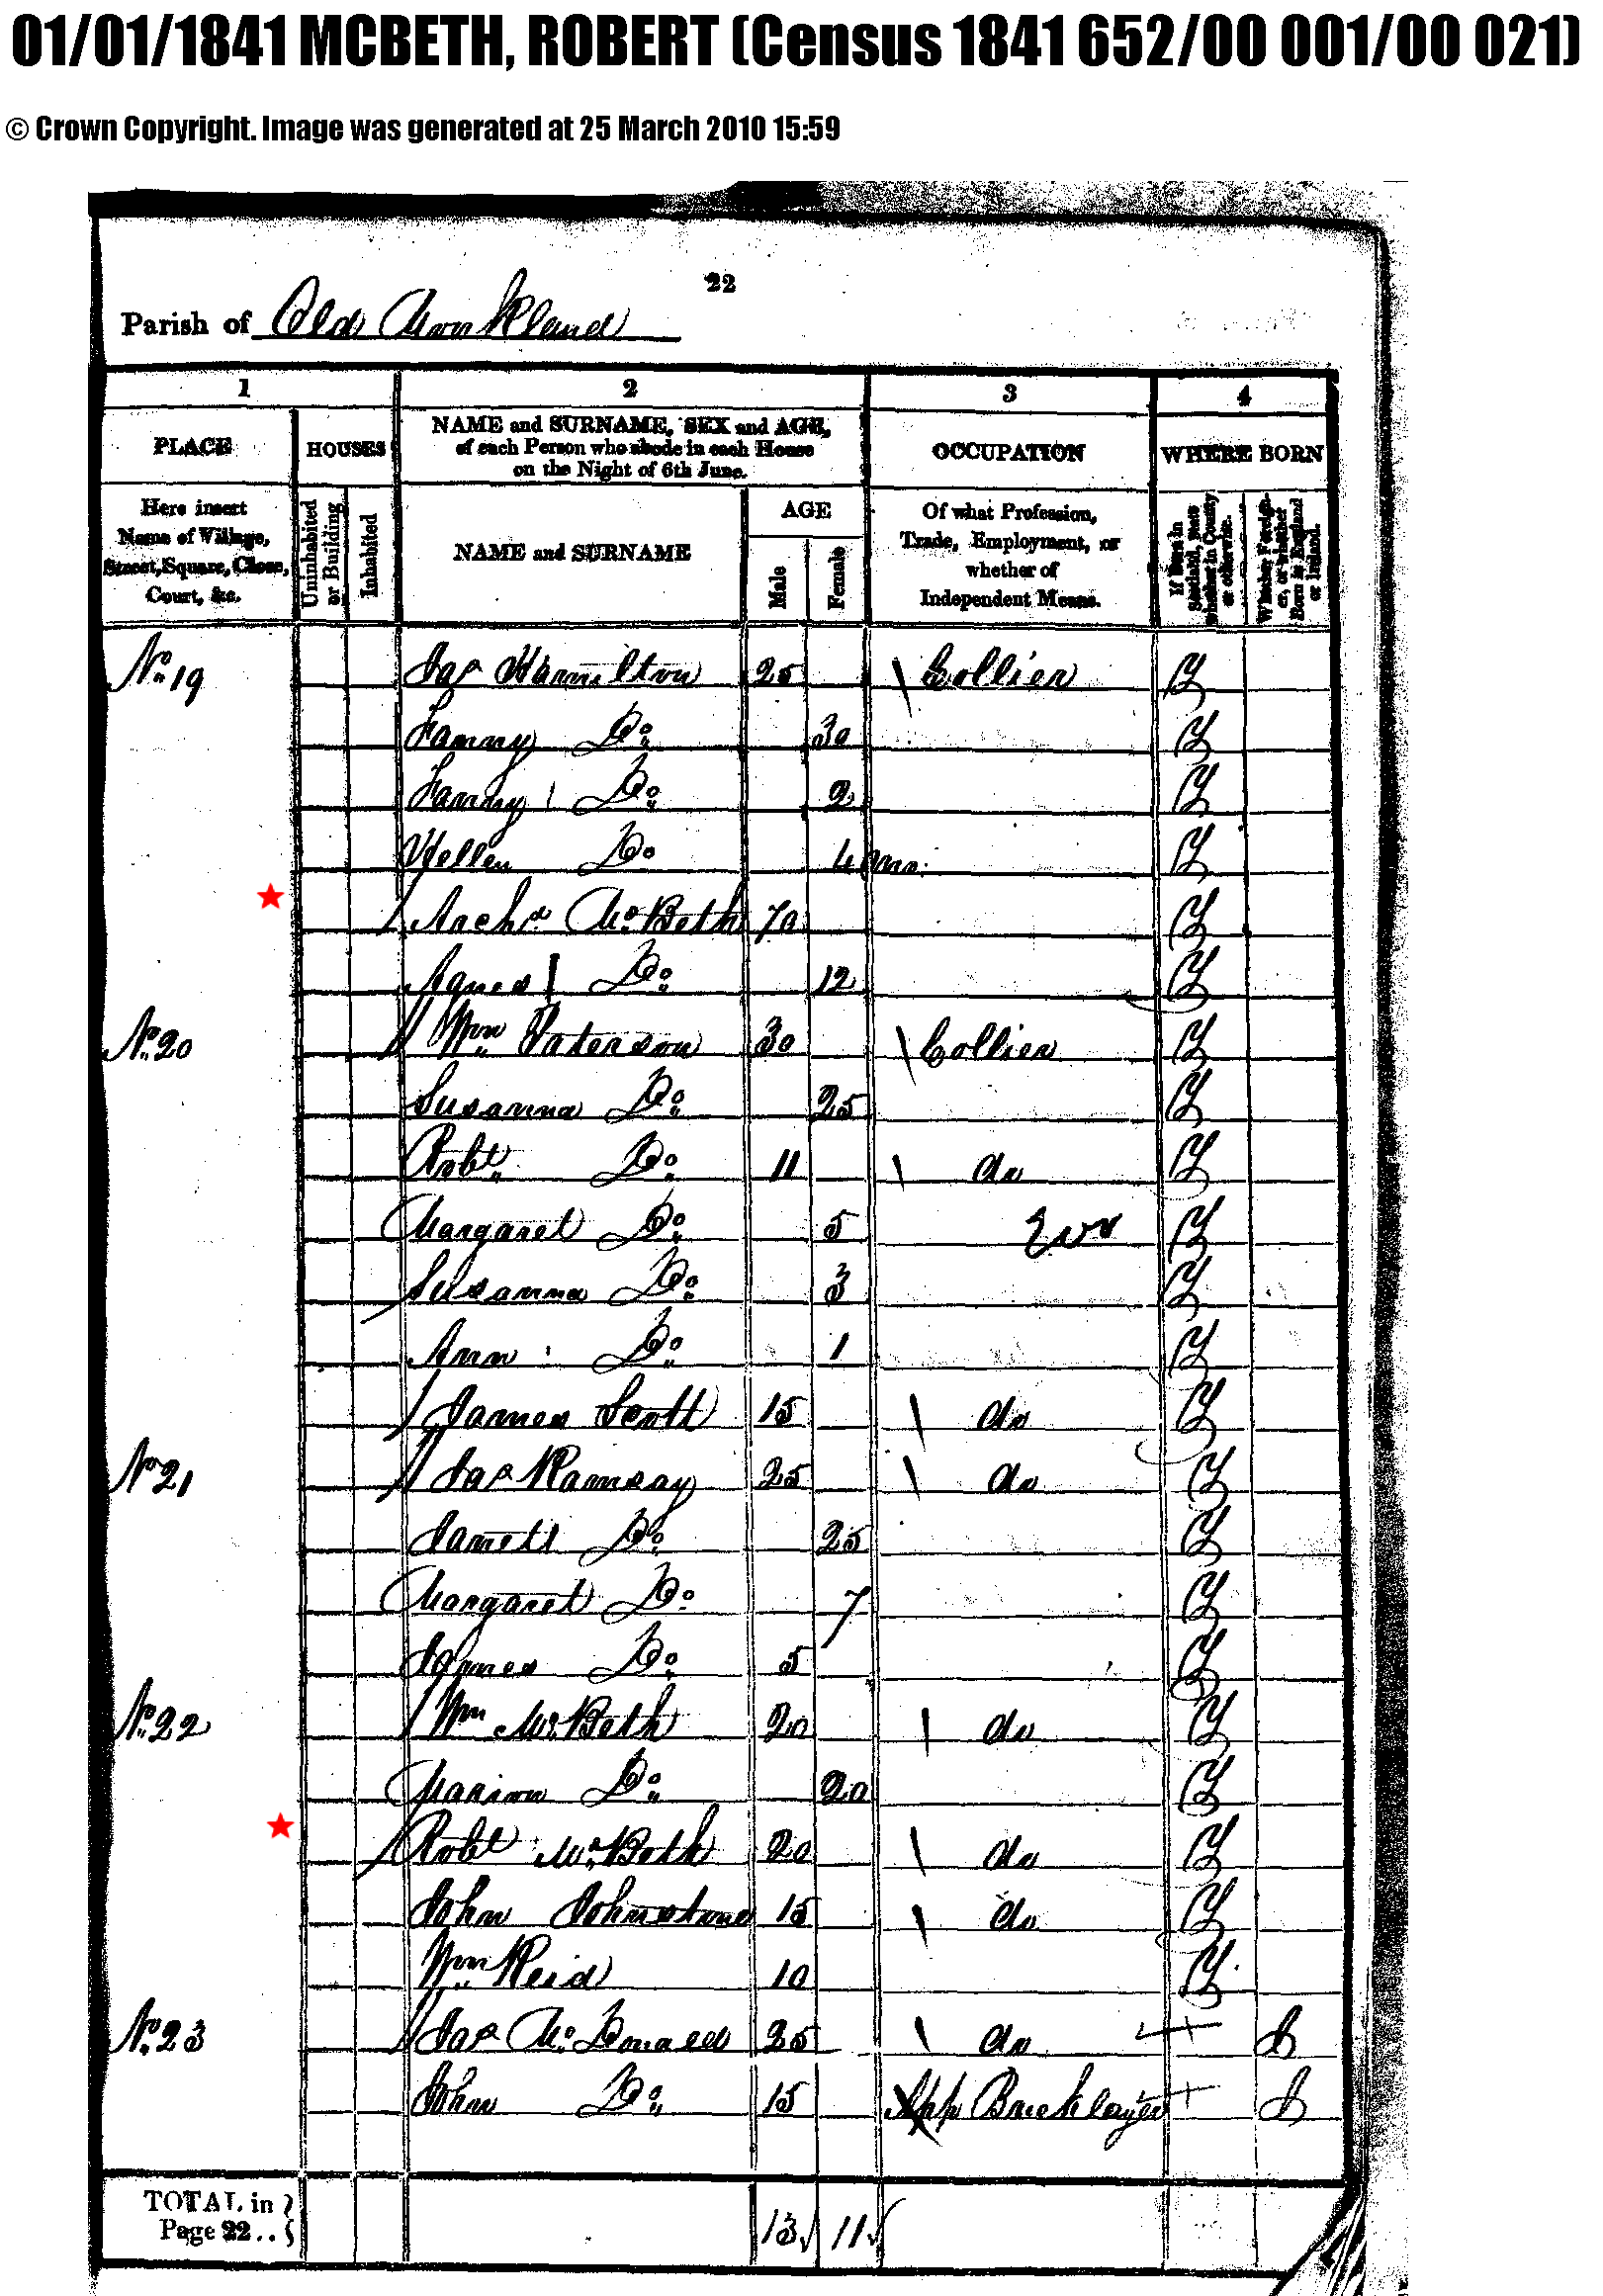 01/01/1841 MCBETH, ROBERT (Census 1841 652/00 001/00 021)
© Crown Copyright. Image was generated at 25 March 2010 15:59
22
Parish of Old Monkland
1 2 3 4
PLACE HOUSES NAME and SURNAME, SEX and AGE, of each Person who abode in each House on the Night of 6th June. OCCUPATION WHERE BORN
Here insert Name of Village, Street, Square, Close, Court, &c. Uninhabited or Building Inhabited NAME and SURNAME AGE Male Female Of what Profession, Trade, Employment, or whether of Independent Means. If Born in Scotland, state whether in County or otherwise. Whether Foreigner, or whether Born in England or Ireland.
No. 19 Jas Hamilton 25 Collier Y
Fanny Do. 30 Y
Fanny Do. 2 Y
Hellen Do 4 mo. Y
Archd McBeth 70 Y
Agnes Do. 12 Y
No. 20 Wm Paterson 30 Collier Y
Susanna Do. 25 Y
Robt. Do. 11 do Y
Margaret Do. 5 Y
Susanna Do. 3 Y
Ann Do. 1 Y
James Scott 15 do Y
No 21 Jas Ramsay 25 do Y
Janett Do. 25 Y
Margaret Do. 7 Y
James Do. 5 Y
No. 22 Wm McBeth 20 do Y
Marion Do. 20 Y
Robt McBeth 20 do Y
John Johnstone 15 do Y
Wm Reid 10 Y
No. 23 Jas McDonald 25 do I
John Do. 15 App Bricklayer I
TOTAL in Page 22.. 13 11